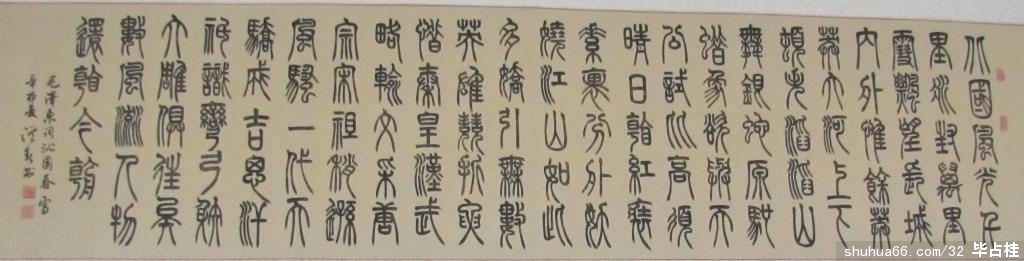 北國風光千
里冰封萬里
雪飄望長城
内外惟餘莽
莽大河上下
頓失滔滔山
舞銀蛇原馳
象欲與天
公試比高須
晴日看紅裝
素裹分外妖
嬈江山如此
多嬌引無數
英雄競折腰
惜秦皇漢武
略輸文采唐
宗宋祖稍遜
風騷一代天
驕成吉思汗
祇識彎弓射
大雕俱往矣
數風流人物
還看今朝
毛澤東詞沁園春雪
辛卯夏
shuhua66.com/32 毕占桂